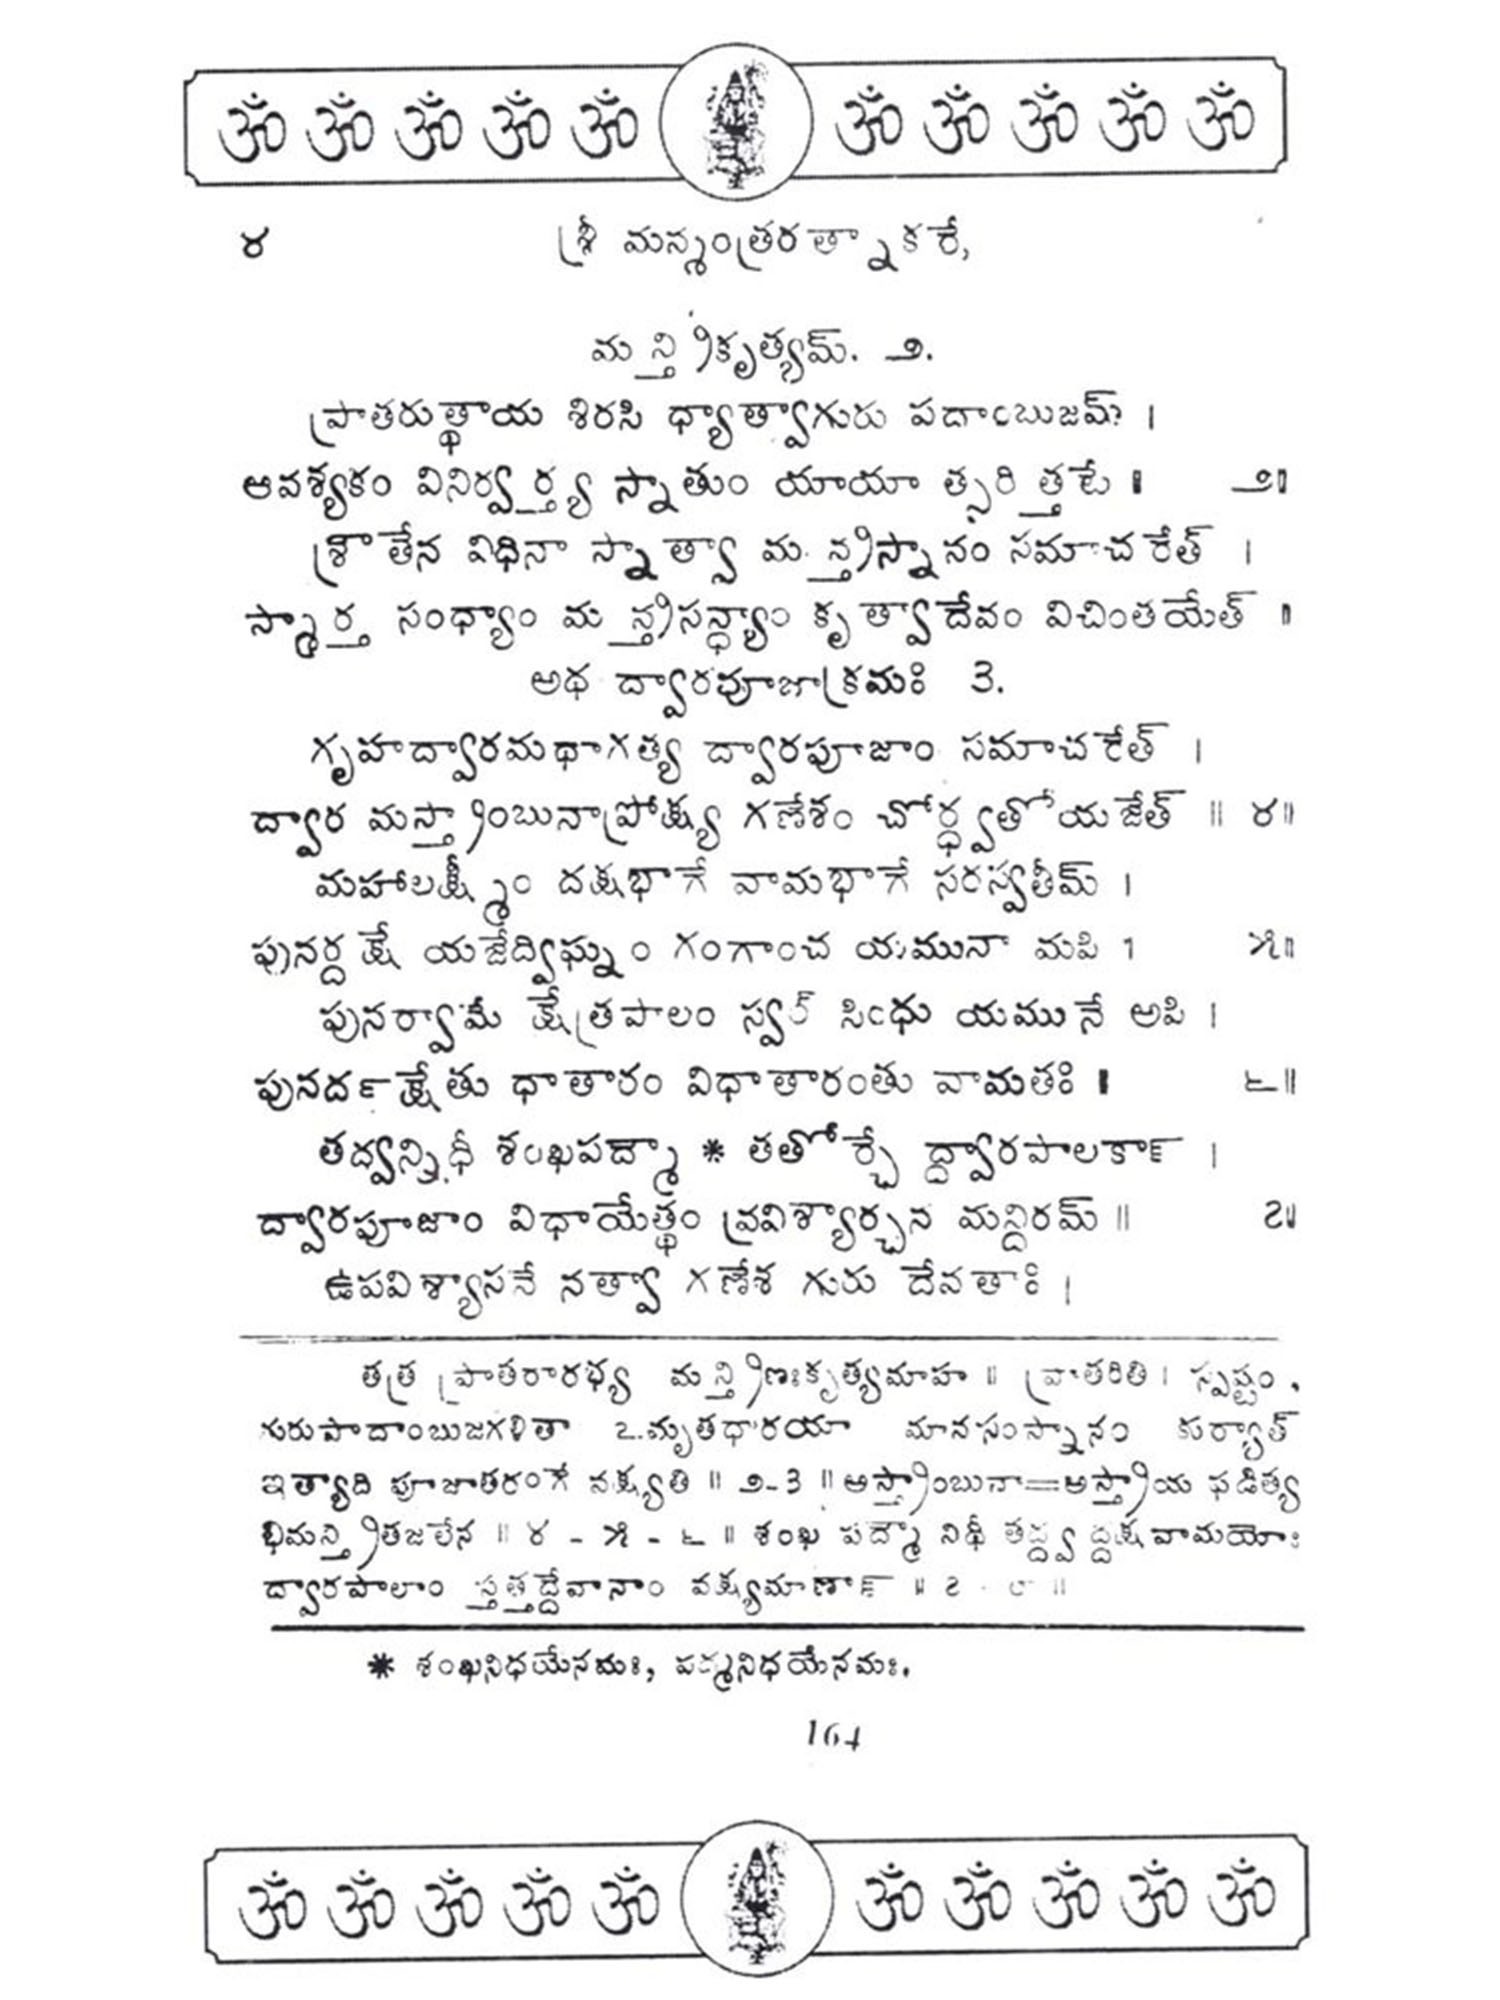 ॐ ॐ ॐ ॐ ॐ ॐ ॐ ॐ ॐ ॐ
౪ శ్రీ మన్మంత్రరత్నాకరే,
మన్త్రికృత్యమ్. ౨.
ప్రాతరుత్థాయ శిరసి ధ్యాత్వాగురు పదాంబుజమ్ ।
ఆవశ్యకం వినిర్వర్త్య స్నాతుం యాయా త్సరిత్తటే ॥ ౨॥
శ్రౌతేన విధినా స్నాత్వా మన్త్రస్నానం సమాచరేత్ ।
స్మార్త సంధ్యాం మన్త్రసన్ధ్యాం కృత్వాదేవం విచింతయేత్ ॥
అథ ద్వారపూజాక్రమః 3.
గృహద్వారమథాగత్య ద్వారపూజాం సమాచరేత్ ।
ద్వార మస్త్రాంబునాప్రోక్ష్య గణేశం చోర్ధ్వతోయజేత్ ॥ ౪॥
మహాలక్ష్మీం దక్షభాగే వామభాగే సరస్వతీమ్ ।
పునర్దక్షే యజేద్విఘ్నం గంగాంచ యమునా మపి । ౫॥
పునర్వామే క్షేత్రపాలం స్వః సింధు యమునే అపి ।
పునదర్‌క్షేతు ధాతారం విధాతారంతు వామతః ॥ ౬॥
తద్వన్నిధీ శంఖపద్మౌ * తతోర్చే ద్ద్వారపాలకాన్ ।
ద్వారపూజాం విధాయేత్థం ప్రవిశ్యార్చన మన్దిరమ్ ॥ ౭॥
ఉపవిశ్యాసనే నత్వా గణేశ గురు దేవతాః ।
తత్ర ప్రాతరారభ్య మన్త్రిణఃకృత్యమాహ ॥ ప్రాతరితి । స్పష్టం,
గురుపాదాంబుజగళితా ఽమృతధారయా మానసంస్నానం కుర్యాత్
ఇత్యాది పూజాతరంగే వక్ష్యతి ॥ ౨-3 ॥ అస్త్రాంబునా=అస్త్రాయ ఫడిత్య
భిమన్త్రితజలేన ॥ ౪ - ౫ - ౬ ॥ శంఖ పద్మౌ నిధీ తద్వ ద్దక్షవామయోః
ద్వారపాలాం స్తత్తద్దేవానాం వక్ష్యమాణాన్ ॥ ౭ - ౮ ॥
* శంఖనిధయేనమః, పద్మనిధయేనమః.
164
ॐ ॐ ॐ ॐ ॐ ॐ ॐ ॐ ॐ ॐ